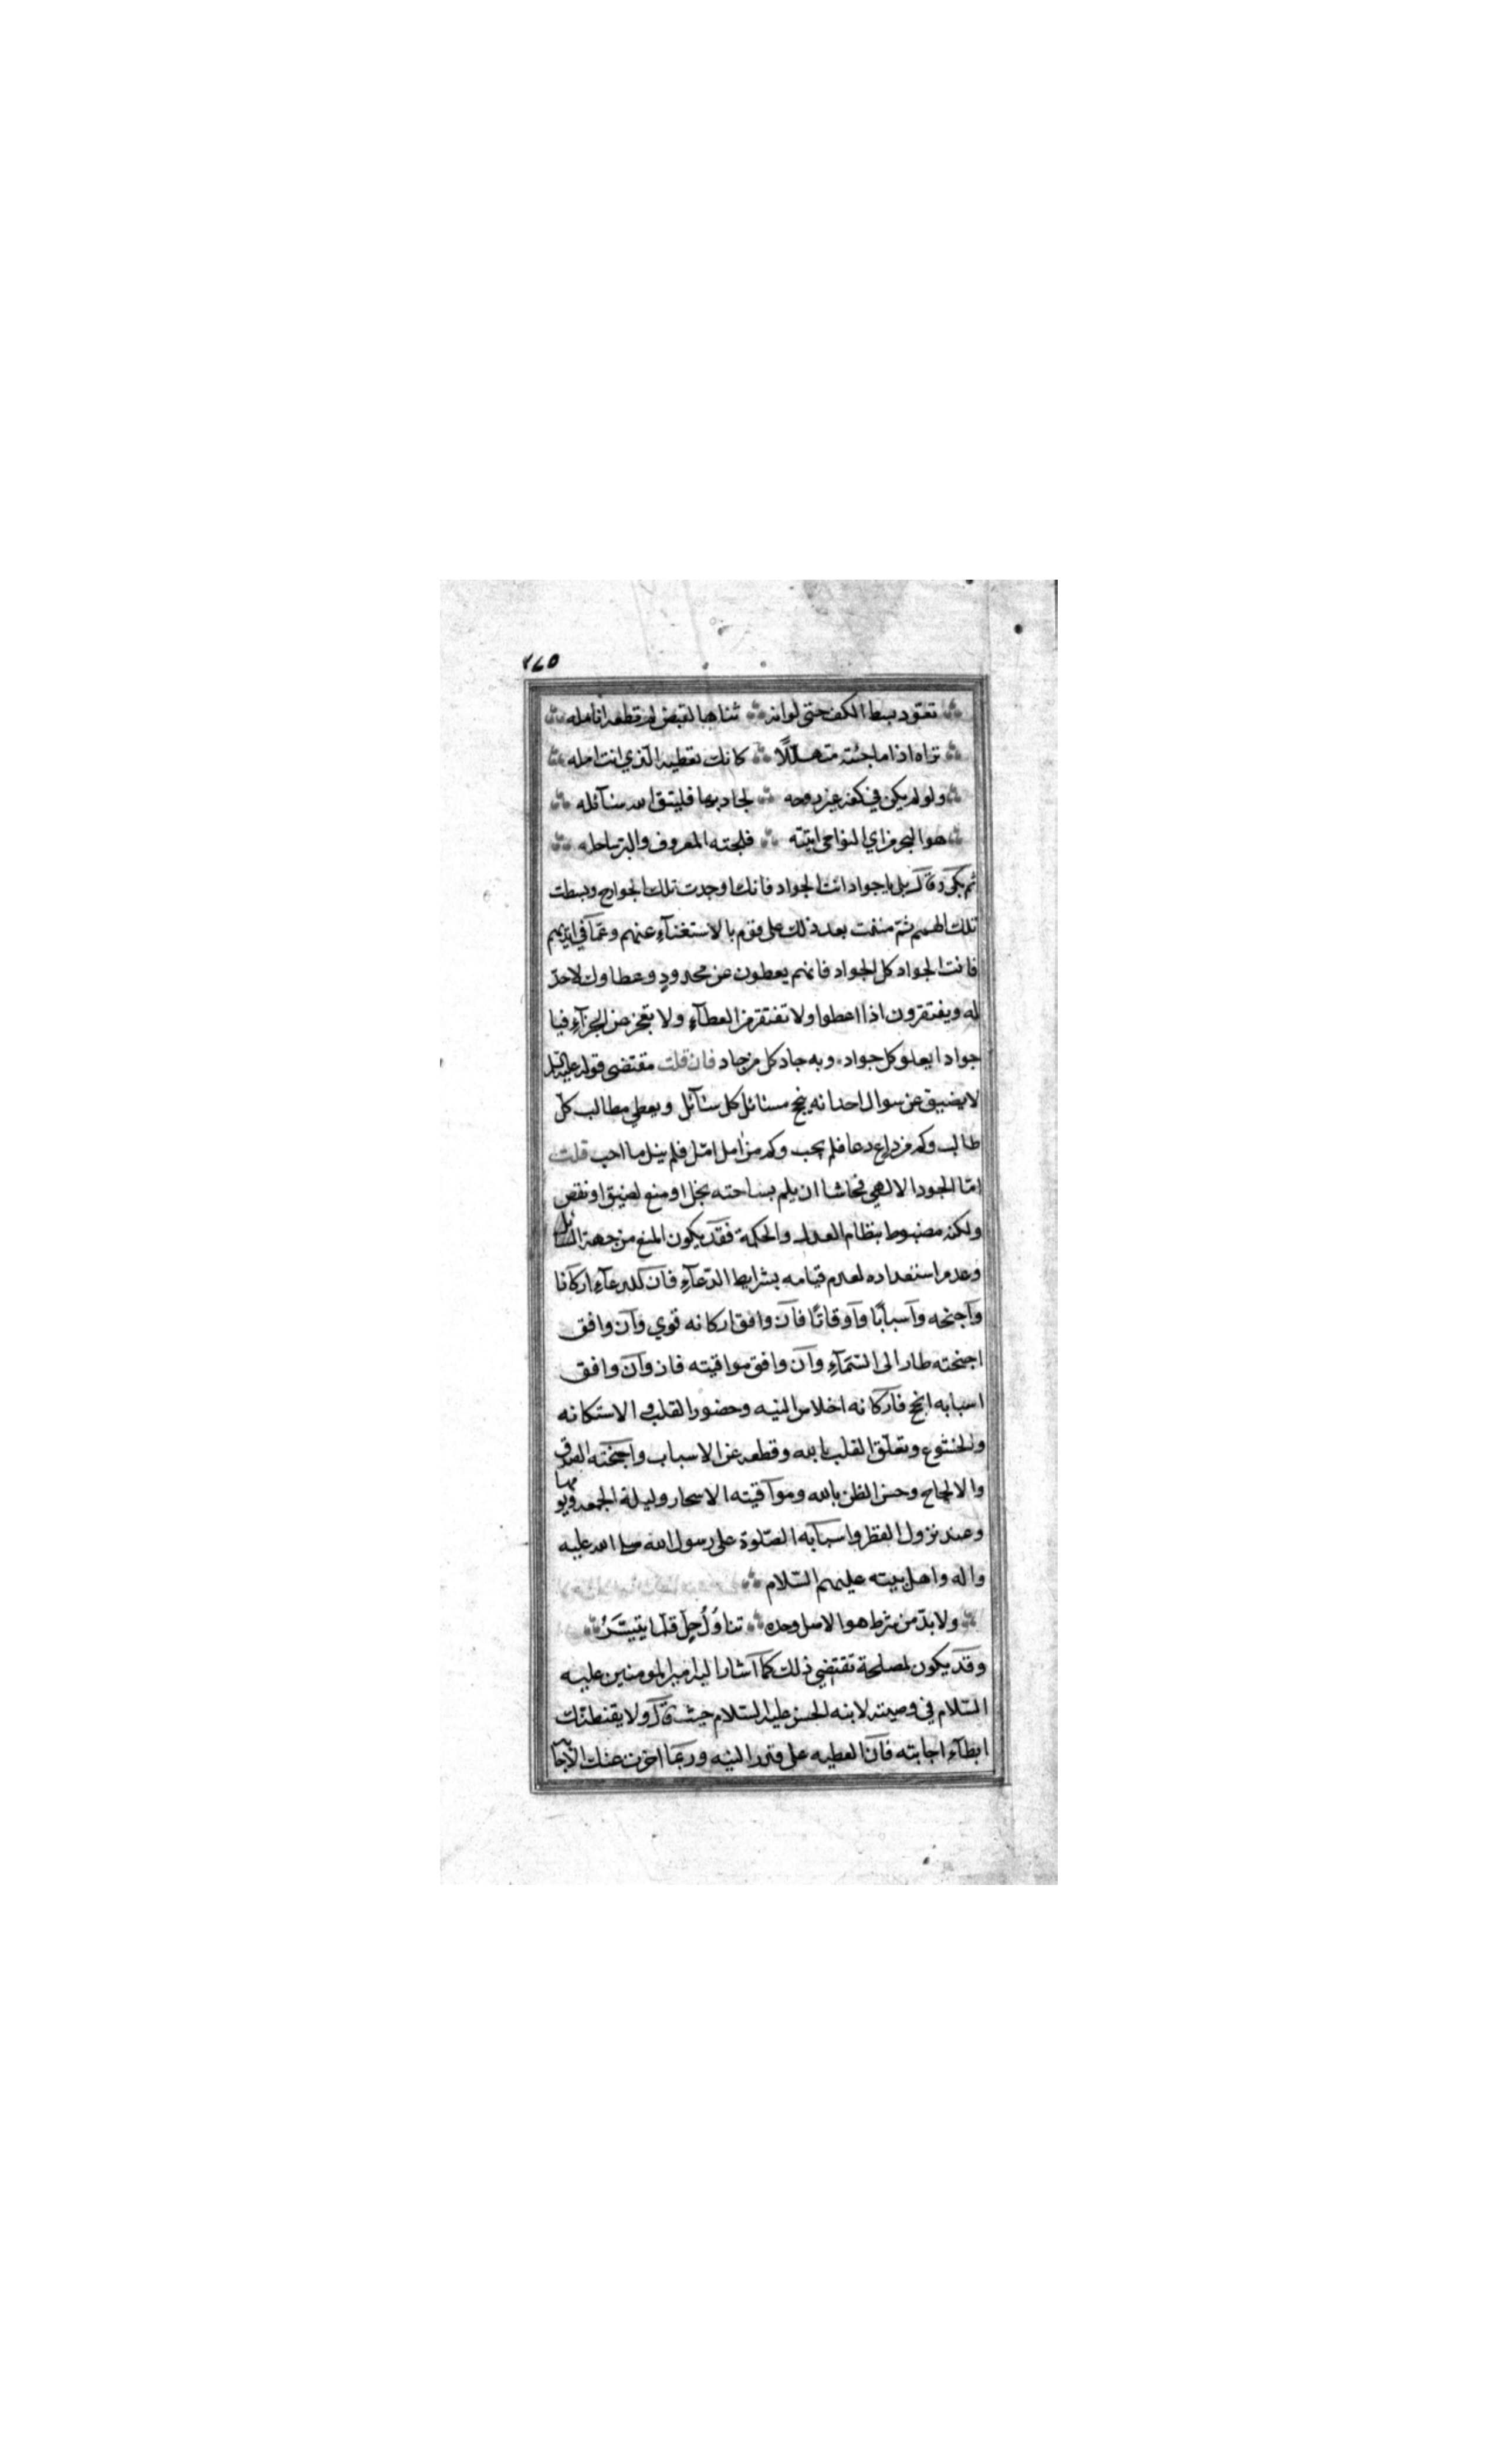 ٢٤٥
تعوّد بسط الكف حتى لو انه ثناها لقبض لم تطعه انامله
تراه اذا ما جئته متهللاً كانك تعطيه الذي انت امله
ولو لم يكن في كفه غير روحه لجاد بها فليتق الله سآئله
هو البحر من اي النواحي اتيته فلجته المعروف والبر ساحله
ثم بكى وقال بلى يا جواد انت الجواد فانك اوجدت تلك الجوارح وبسطت
تلك الهمم ثمّ مننت بعد ذلك على قوم بالاستغنآء عنهم وعمّا في ايديهم
فانت الجواد كل الجواد فانهم يعطون عن محدودٍ وعطاوك لا حدّ
له ويفتقرون اذا اعطوا ولا تفتقر من العطآء ولا تعجز عن الجزآء فيا
جوادا يعلو كل جواد وبه جاد كل من جاد فان قلت مقتضى قوله عليه السلام
لا يضيق عن سوال احد انه ينجح مسائل كل سآئل ويعطي مطالب كلّ
طالب وكم من داع دعا فلم يجب وكم من امل امّل فلم ينل ما احب قلت
امّا الجود الالهي فحاشا ان يلم بساحته بخل او منع لضيق او نقص
ولكنه مضبوط بنظام العدل والحكمة فقد يكون المنع من جهة السائل
وعدم استعداده لعدم قيامه بشرايط الدّعآء فان للدعآء اركانا
وآجنحه وآسبابًا وآوقاتًا فآن وافق اركانه قوي وآن وافق
اجنحته طار الى السّمآء وآن وافق مواقيته فاز وآن وافق
اسبابه انجح فآركانه اخلاص النيه وحضور القلب والاستكانه
والخشوع وتعلّق القلب بالله وقطعه عن الاسباب واجنحته الصدق
والالحاح وحسن الظن بالله وموآقيته الاسحار وليلة الجمعه ويومها
وعند نزول القطر واسبآبه الصّلوة على رسول الله صلى الله عليه
واله واهل بيته عليهم السّلام
ولا بدّ من شرط هو الاصل وحده تناوُلُ حِلٍّ قلّما يتيسّرُ
وقد يكون لمصلحة تقتضي ذلك كمآ آشار اليه امير المومنين عليه
السّلام في وصيته لابنه الحسن عليه السّلام حيث قال ولا يقنطنّك
ابطآء اجابته فآنّ العطيه على قدر النيه وربمّا اخرت عنك الاجابة